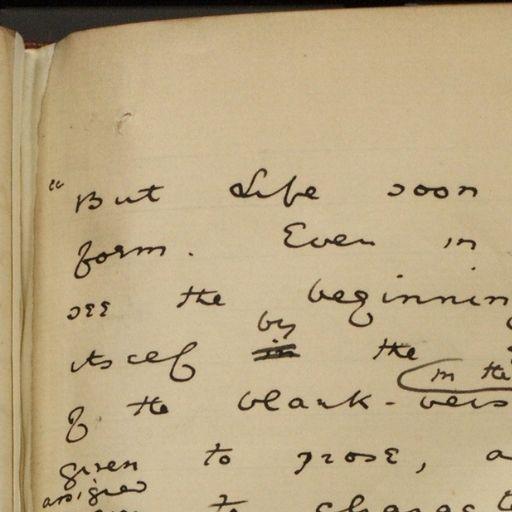 "But Life soon
form. Even in
see the beginnin
by
itself in the
in the
of the blank-vers
given to prose, a
assigned
to change t